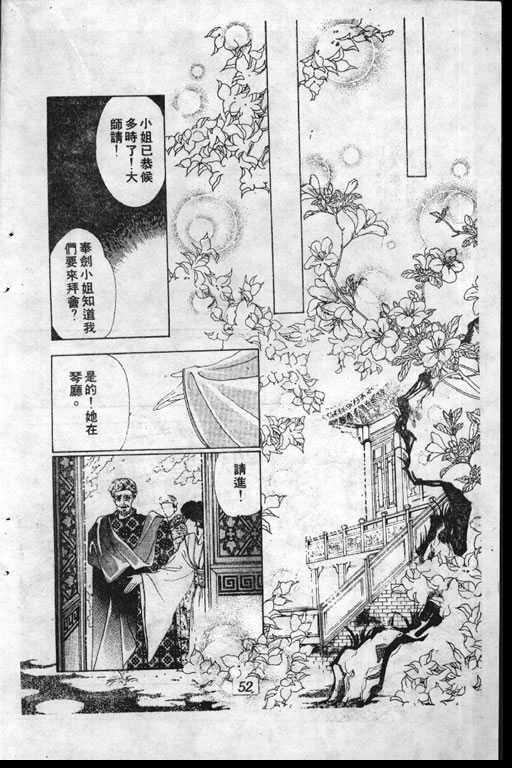 小姐已恭候
多時了！大
師請！
奉劍小姐知道我
們要來拜會？
是的！她在
琴廳。
請進！
52